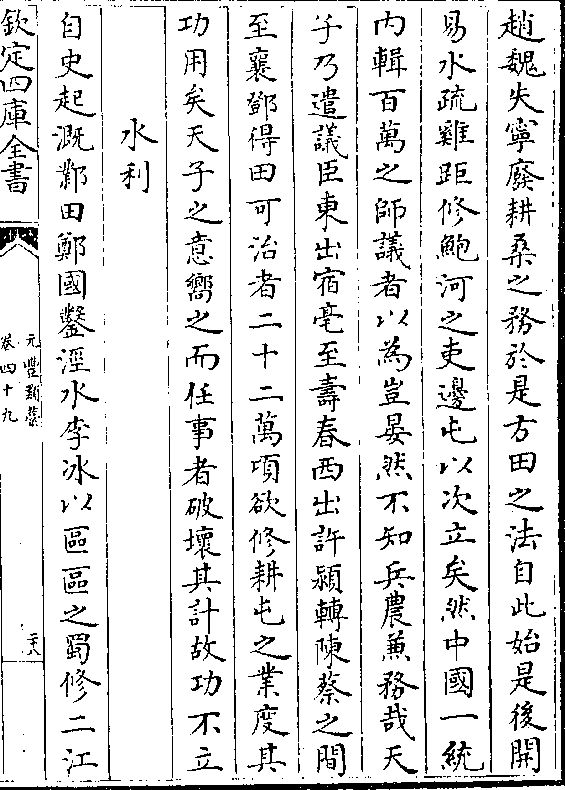 趙魏失寧廢耕桑之務於是方田之法自此始是後開
易水疏雞距修鮑河之吏邊屯以次立矣然中國一統
内輯百萬之師議者以為豈晏然不知兵農兼務哉天
子乃遣議臣東出宿亳至壽春西出許潁轉陳蔡之間
至襄鄧得田可治者二十二萬頃欲修耕屯之業度其
功用矣天子之意嚮之而任事者破壞其計故功不立
水利
自史起溉鄴田鄭國鑿涇水李冰以區區之蜀修二江
欽定四庫全書
元豐類藁
卷四十九